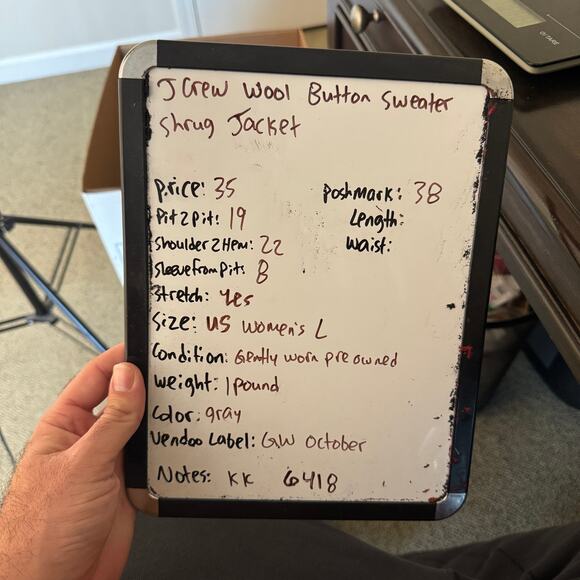 J Crew Wool Button Sweater
Shrug Jacket
Price: 35
Poshmark: 38
Pit2Pit: 19
Length:
Shoulder2Hem: 22
Waist:
Sleeve from Pit: 8
Stretch: Yes
Size: US Women's L
Condition: Gently worn pre owned
Weight: 1 pound
Color: gray
Vendoo Label: GW October
Notes: KK 6418